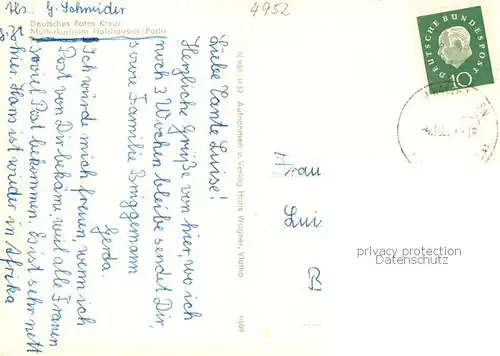 Abs. G. Schneider
4952
Deutsches Rotes Kreuz
Mütterkurheim Holzhausen / Porta
Liebe Tante Luise!
Herzliche Grüße von hier, wo ich
noch 3 Wochen bleibe sendet Dir,
sowie Familie Brüggemann
Gerda.
Ich würde mich freuen, wenn ich
Post von Dir bekäme, weil alle Frauen
soviel Post bekommen. Es ist sehr nett
hier. Hans ist wieder in Afrika
Aufnahmen u. Verlag Hans Wagner, Vlotho
DEUTSCHE BUNDESPOST
10
Frau
Lui
B
privacy protection
Datenschutz